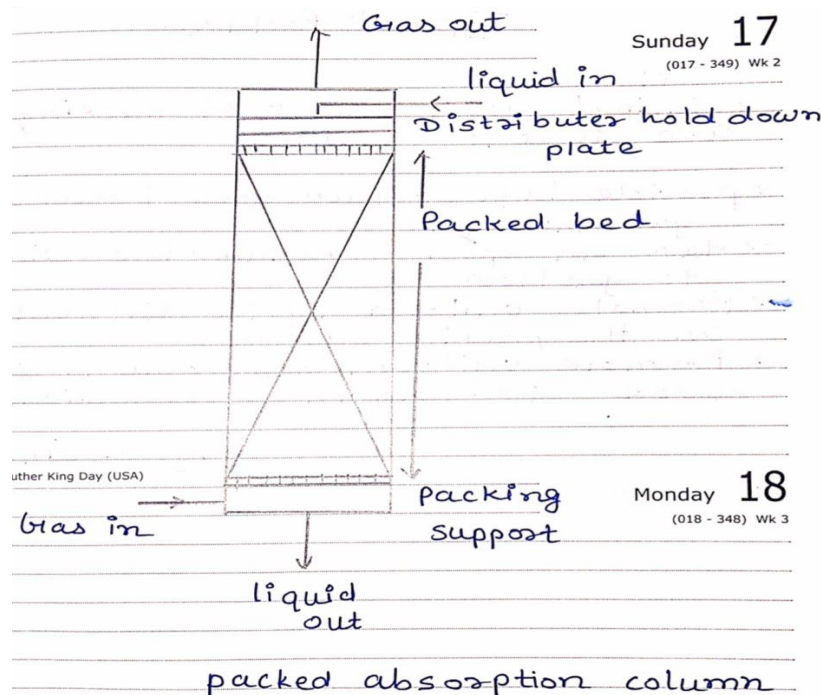 Gas out
Sunday 17
(017 - 349) Wk 2
liquid in
Distributer hold down
plate
Packed bed
uther King Day (USA)
Packing
support
Monday 18
(018 - 348) Wk 3
Gas in
liquid
out
packed absorption column